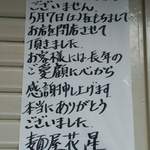 ございません。
5月7日(土)をもちまして
お店を閉店させて
頂きました。
お客様には長年の
ご愛顧に心から
感謝申し上げます
本当にありがとう
ございました。
麺屋花星